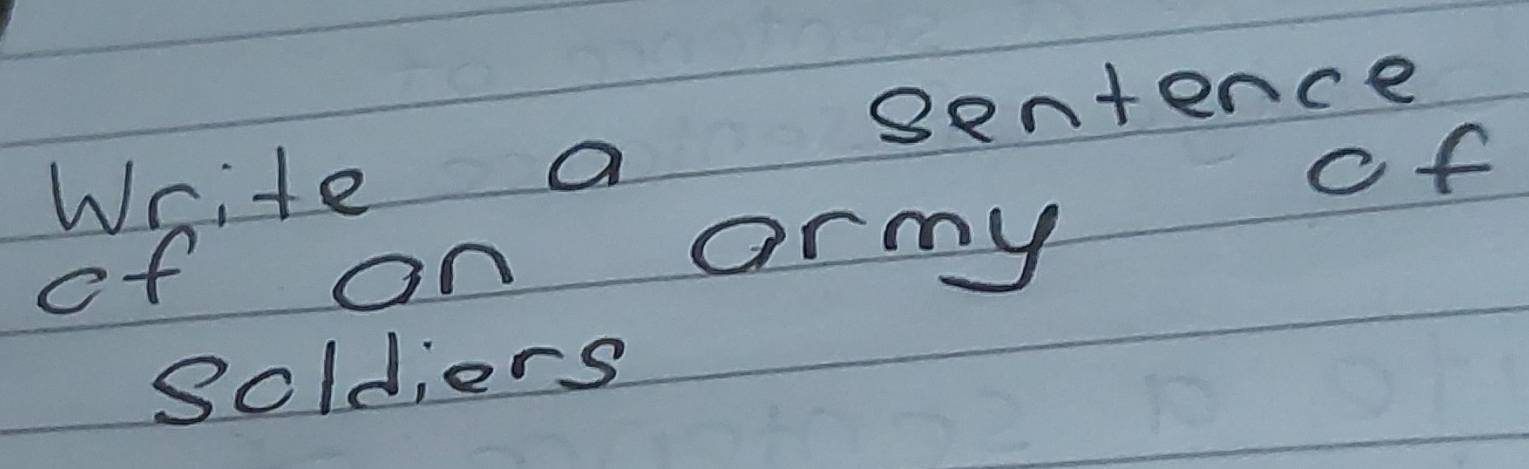 Write a sentence
of an army of
soldiers